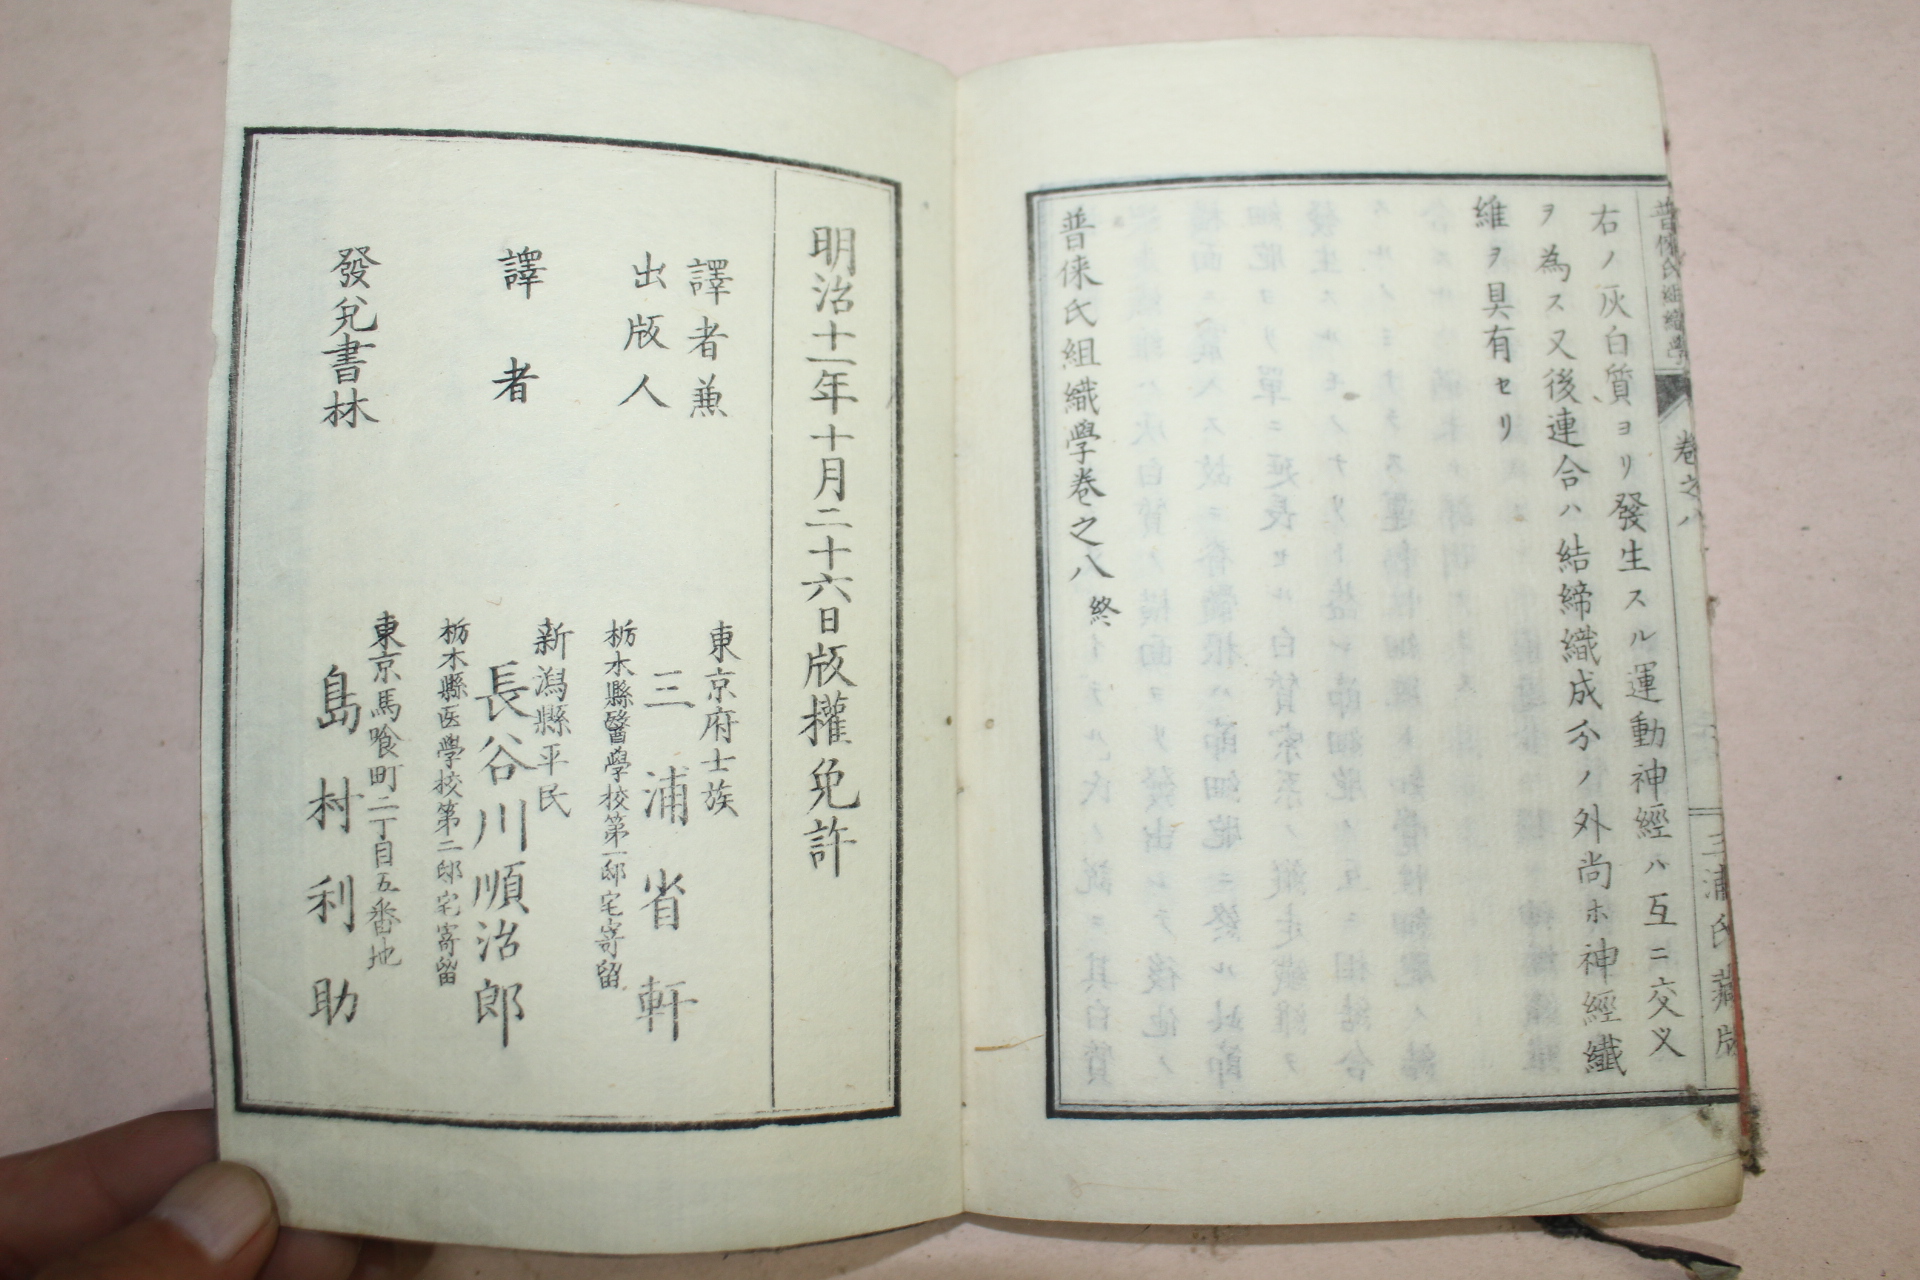 普倈氏組織學
卷之八
三浦氏藏版
右ノ灰白質ヨリ發生スル運動神經ハ互ニ交叉
ヲ為ス又後連合ハ結締織成分ノ外尚ホ神經纖
維ヲ具有セリ
普倈氏組織學卷之八 終
明治十一年十月二十六日版權免許
譯者兼
出版人
東京府士族
三浦省軒
栃木縣醫學校第一邸宅寄留
譯者
新潟縣平民
長谷川順治郎
栃木縣医學校第二邸宅寄留
發兌書林
東京馬喰町二丁目五番地
島村利助